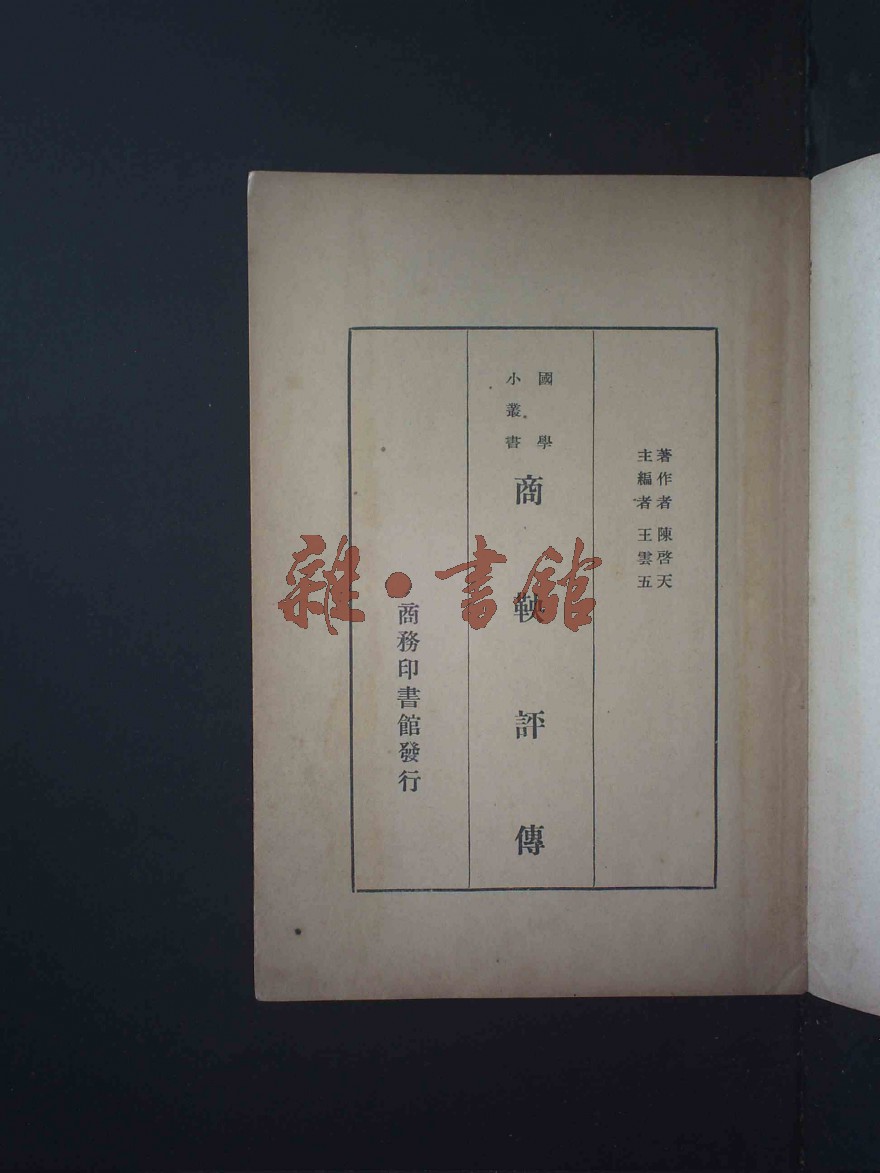 著作者 陳啓天
主編者 王雲五
國學
小叢書
商鞅評傳
商務印書館發行
雜•書館